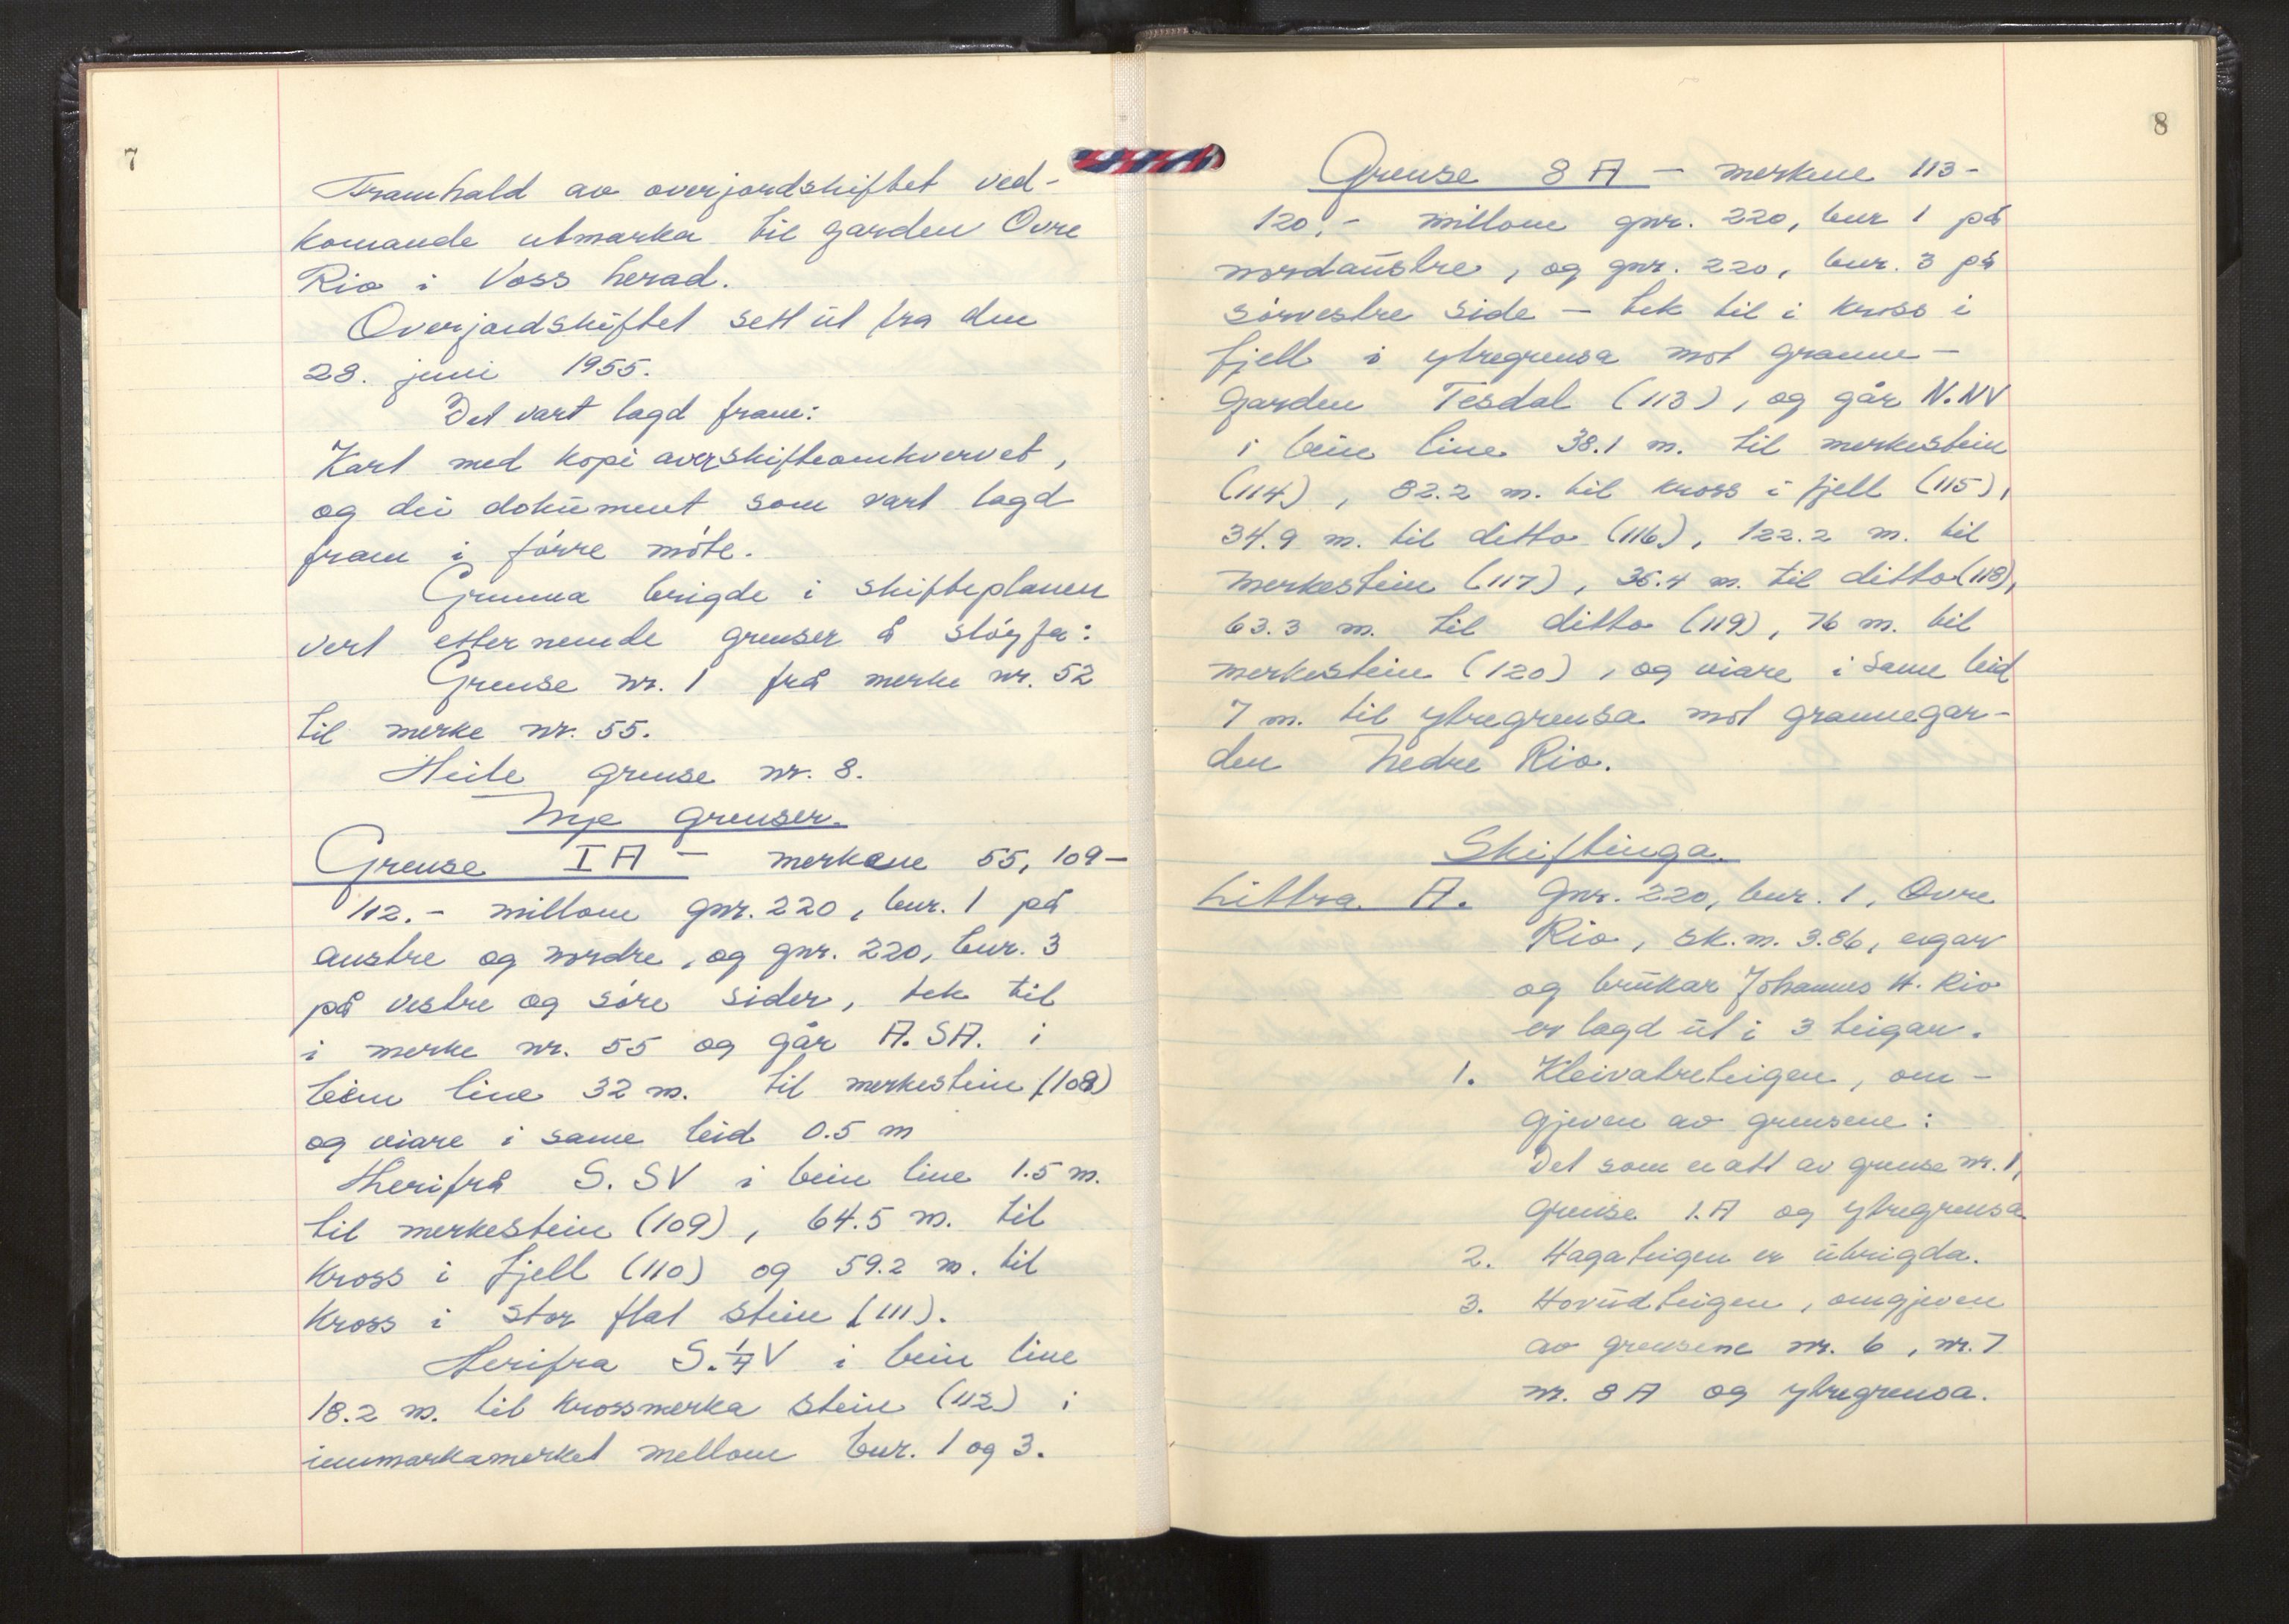 7
Framhald av overjordskiftet ved-
komande utmarka til garden Øvre
Rio i Voss herad.
Overjordskiftet sett ut fra den
28. juni 1955.
Det vart lagd fram:
Kart med kopi over skifteomkvervet,
og dei dokument som vart lagd
fram i førre møte.
Grunna brigde i skifteplanen
vert etternemde grenser å sløyfa:
Grense nr. 1 frå merke nr. 52
til merke nr. 55.
Heile grense nr. 8.
Nye grenser.
Grense I A - merkene 55, 109-
112. - millom gnr. 220, bnr. 1 på
austre og nordre, og gnr. 220, bnr. 3
på vestre og søre sider, tek til
i merke nr. 55 og går A. SA. i
bein line 32 m. til merkestein (108)
og viare i same leid 0.5 m
Herifrå S. SV i bein line 1.5 m.
til merkestein (109), 64.5 m. til
kross i fjell (110) og 59.2 m. til
kross i stor flat stein (111).
Herifra S. 1/4 V i bein line
18.2 m. til krossmerka stein (112) i
innmarkamerket mellom bnr. 1 og 3.
8
Grense 8 A - merkene 113-
120. - millom gnr. 220, bnr 1 på
nordaustre, og gnr. 220, bnr. 3 på
sørvestre side - tek til i kross i
fjell i ytregrensa mot granne-
garden Tesdal (113), og går N. NV
i bein line 38.1 m. til merkestein
(114), 82.2 m. til kross i fjell (115),
34.9 m. til ditto (116), 122.2 m. til
merkestein (117), 36.4 m. til ditto (118),
63.3 m. til ditto (119), 76 m. til
merkestein (120), og viare i same leid
7 m. til ytregrensa mot grannegar-
den Nedre Rio.
Skiftinga.
Littra A. Gnr. 220, bnr. 1, Øvre
Rio, sk.m. 3.86, eigar
og brukar Johannes H. Rio
er lagd ut i 3 teigar.
1. Kleivatreteigen, om-
gjeven av grensene:
Det som er att av grense nr. 1,
grense 1.A og ytregrensa
2. Hagateigen er ubrigda.
3. Hovudteigen, omgjeven
av grensene nr. 6, nr. 7
nr. 8 A og ytregrensa.